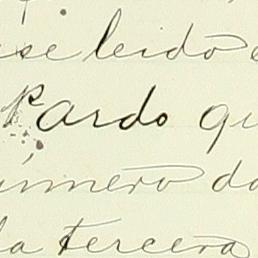 ese leido
Pardo qu
número do
la tercera